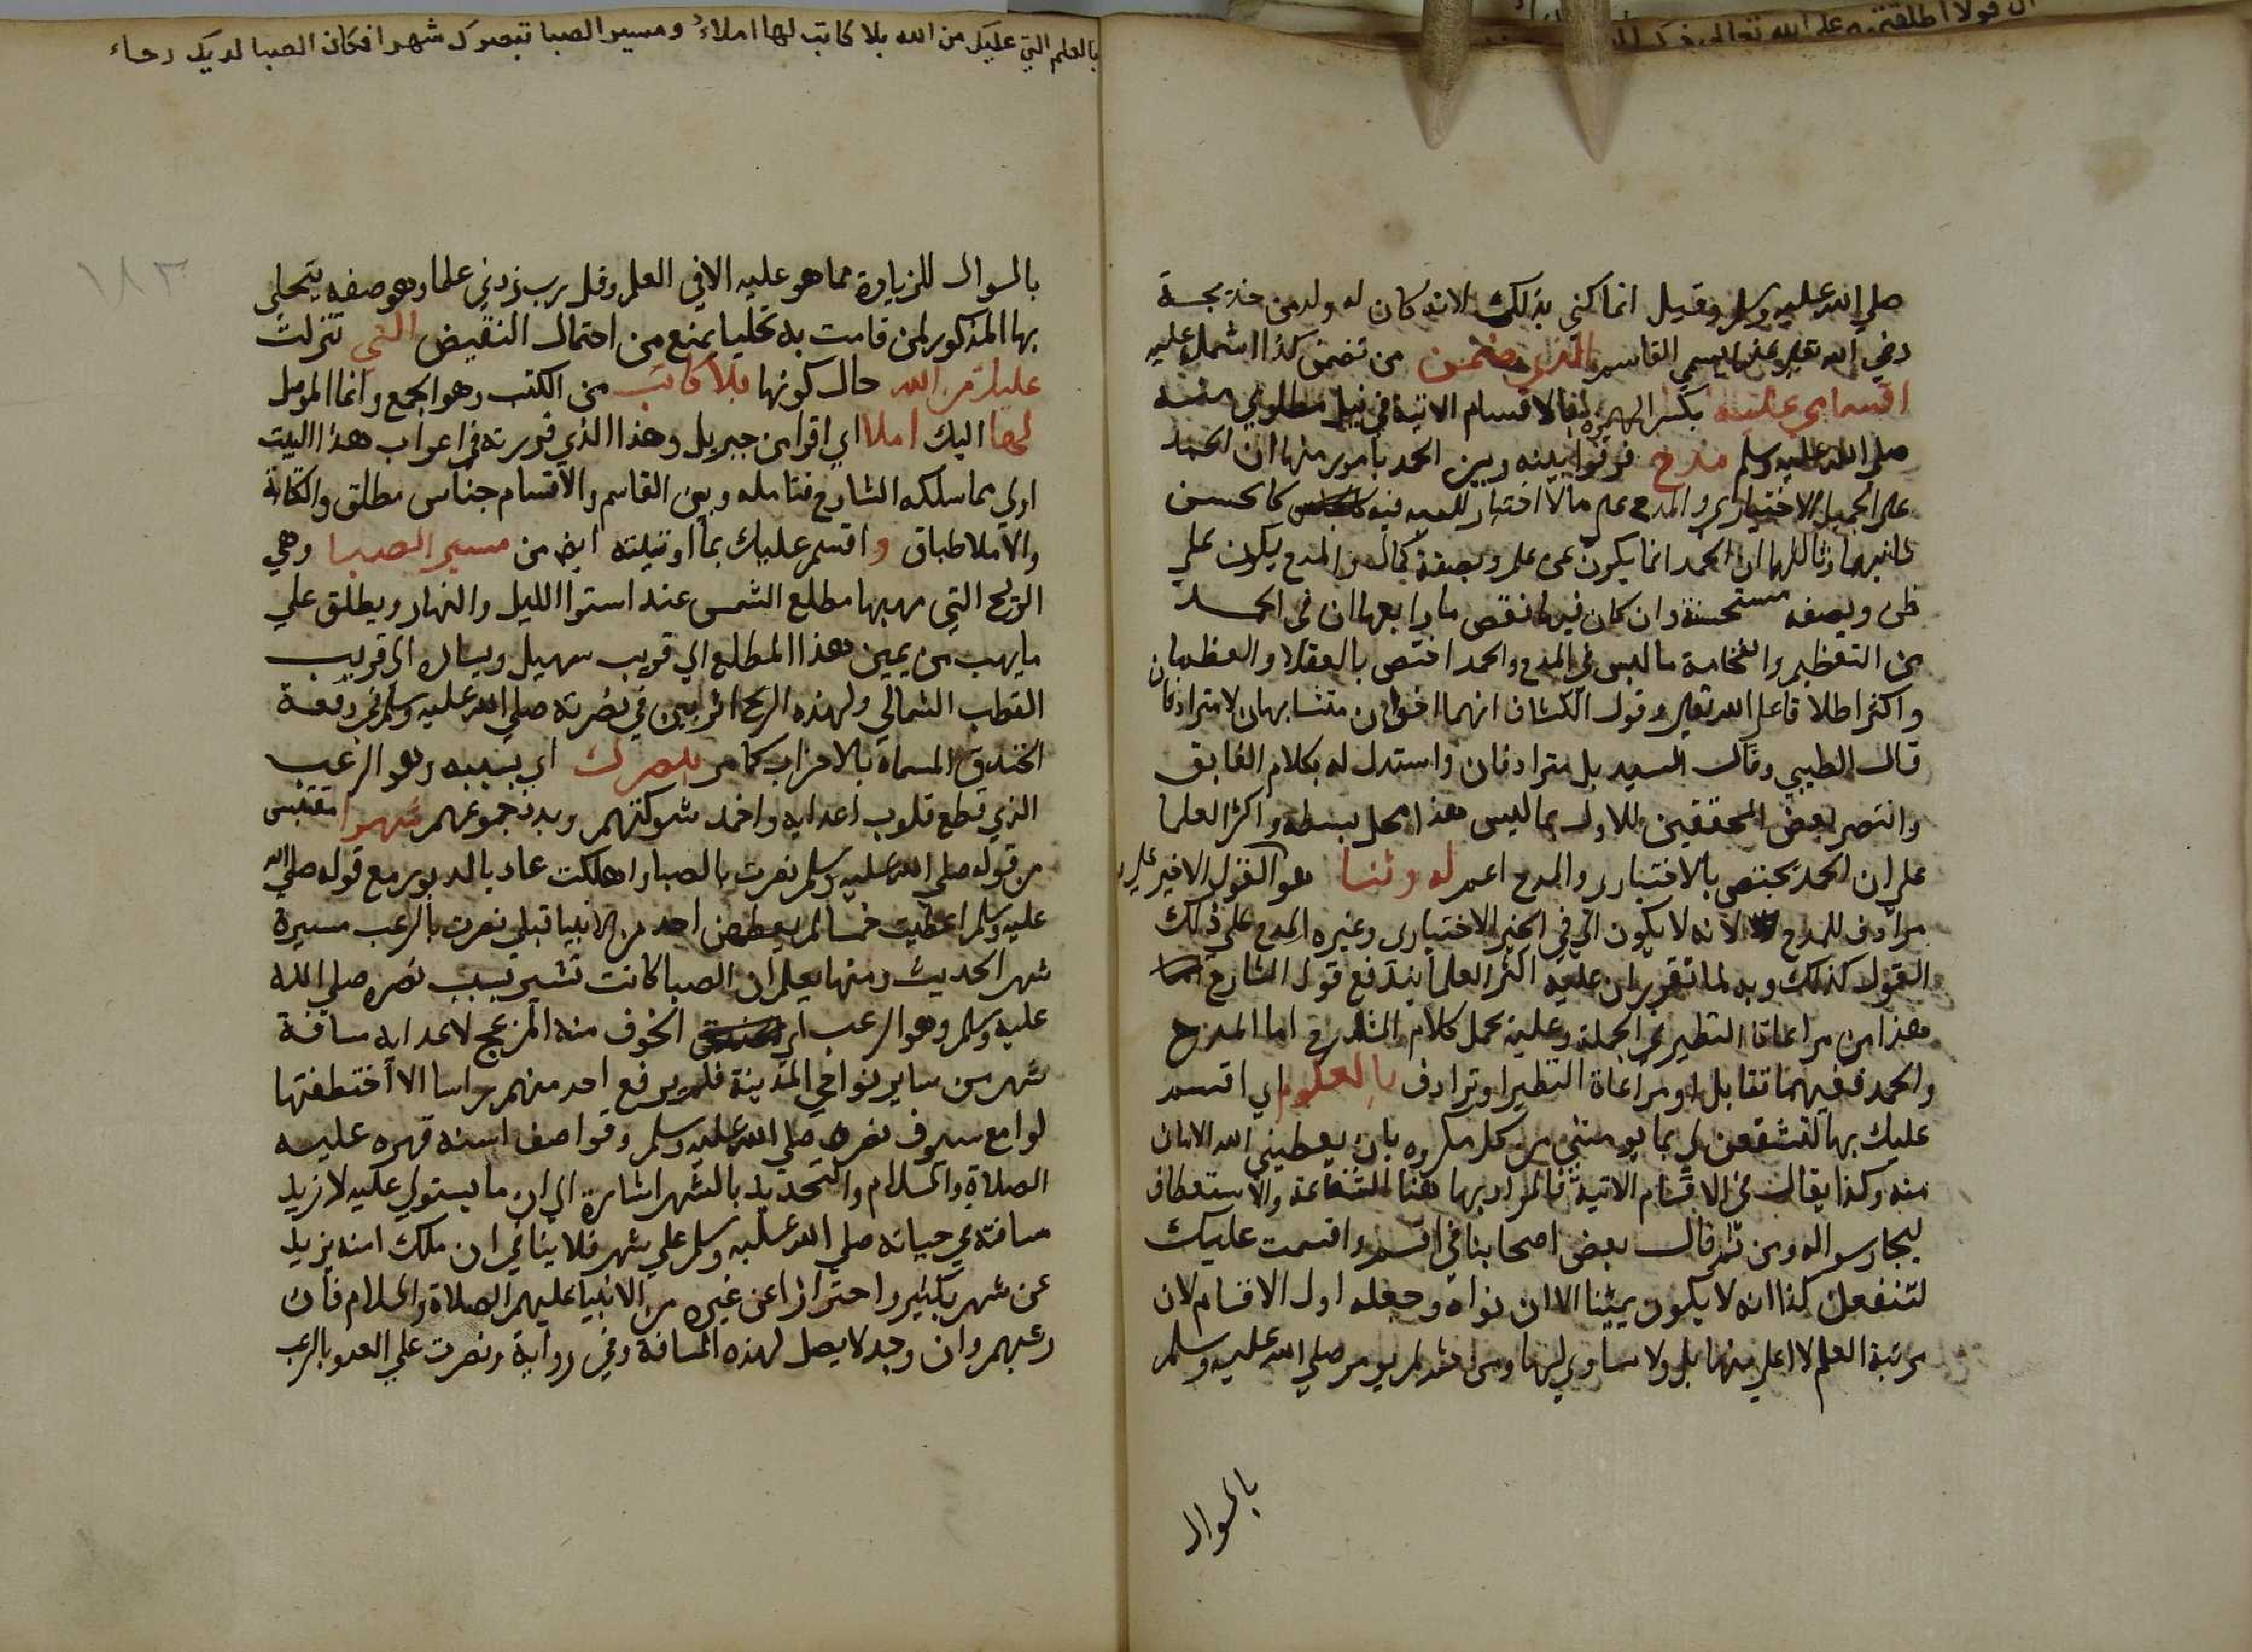 صلي الله عليه وسلم وقيل انما كني بذلك لانه كان له ولد من خديجة
رضي الله تعالي عنها يسمي القاسم الذي ضمن من تضمن كذا اشتمل عليه
اقسامي عليه بكسر الهمزة فالاقسام الاتية في نيل مطلوبي منه
صلي الله عليه وسلم مدح فرقوا بينه وبين الحمد بامور منها ان الحمد
علي الجميل الاختياري والمدح علي ما لا اختيار للعبد فيه كالحسن
ثانيها وثالثها ان الحمد انما يكون عن علم وبصفة كمال والمدح يكون علي
ظن وبصفه مستحسنة وان كان فيها نقص ما رابعها ان في الحمد
من التعظيم والفخامة ما ليس في المدح والحمد اختص بالعقلا والعظما
واكثر اطلاقا علي الله تعالي وقول الكشاف انهما اخوان متشابهان لا مترادفان
قال الطيبي وقال السيد بل مترادفان واستدل له بكلام الفايق
وانتصر بعض المحققين للاول بما ليس هذا محل بسطه واكثر العلما
علي ان الحمد يختص بالاختياري والمدح اعم له وثنا هو القول الاخير
مرادف للمدح لانه لا يكون الا في الخير الاختياري وغيره المدح علي ذلك
القول كذلك وبه لما تقرر ان عليه اكثر العلما يندفع قول الشارح
هذا من مراعاة النظير في الجملة وعليه يحمل كلام الشارح اما المدح
والحمد ففيهما تقابل او مراعاة النظير او ترادف بالعلوم اي اقسم
عليك بها لتشفعن لي بما يومنني من كل مكروه بان يعطيني الله الامان
منه وكذا يقال في الاقسام الاتية فالمراد بها هنا الشفاعة والاستعطاف
ليجاب سواله ومن ثم قال بعض اصحابنا في اقسم واقسمت عليك
لتفعلن كذا انه لا يكون يمينا الا ان نواه وجعله اول الاقسام لان
مرتبة العلم لا اعلي منها بل ولا مساوي لها ومن ثم لم يومر صلي الله عليه وسلم
بالسوال
بالعلم التي عليك من الله بلا كاتب لها املاء ومسير الصبا بنصرك شهرا فكان الصبا لديك رخاء
١٨٣
بالسوال للزيادة مما هو عليه الا في العلم وقل رب زدني علما وهو صفه يتجلي
بها المذكور لمن قامت به تجليا يمنع من احتمال النقيض التي تنزلت
عليك من الله حال كونها بلا كاتب من الكتب وهو الجمع وانما الموصل
لها اليك املا اي اقرا من جبريل وهذا الذي قررته في اعراب هذا البيت
اولي مما سلكه الشارح فتامله وبين القاسم والاقسام جناس مطلق والكتابة
والاملا طباق واقسم عليك بما اوتيته ايض من مسير الصبا وهي
الريح التي مهبها مطلع الشمس عند استوا الليل والنهار ويطلق علي
ما يهب من يمين هذا المطلع الي قريب سهيل ويساره الي قريب
القطب الشمالي ولهذه الريح اثر بين في نصرته صلي الله عليه وسلم في وقعة
الخندق المسماة بالاحزاب كما مر بنصرك اي بسببه وهو الرعب
الذي قطع قلوب اعدايه واخمد شوكتهم وبدد جموعهم شهرا مقتبس
من قوله صلي الله عليه وسلم نصرت بالصبا واهلكت عاد بالدبور مع قوله صلي الله
عليه وسلم اعطيت خمسا لم يعطهن احد من الانبيا قبلي نصرت بالرعب مسيرة
شهر الحديث ومنها يعلم ان الصبا كانت تسير بسبب نصره صلي الله
عليه وسلم وهو الرعب اي الخوف منه المزعج لاعدايه مسافة
شهر من ساير نواحي المدينة فلم يرفع احد منهم راسا الا اختطفتها
لوامع سيوف نصره صلي الله عليه وسلم وقواصف اسنه قهره عليه
الصلاة والسلام والتحديد بالشهر اشارة الي ان ما يستولي عليه لا يزيد
مسافته في حياته صلي الله عليه وسلم علي شهر فلا ينافي ان ملك امته يزيد
عن شهر بكثير واحترازا عن غيره من الانبيا عليهم الصلاة والسلام فان
رعبهم وان وجد لا يصل لهذه المسافة وفي رواية ونصرت علي العدو بالرعب